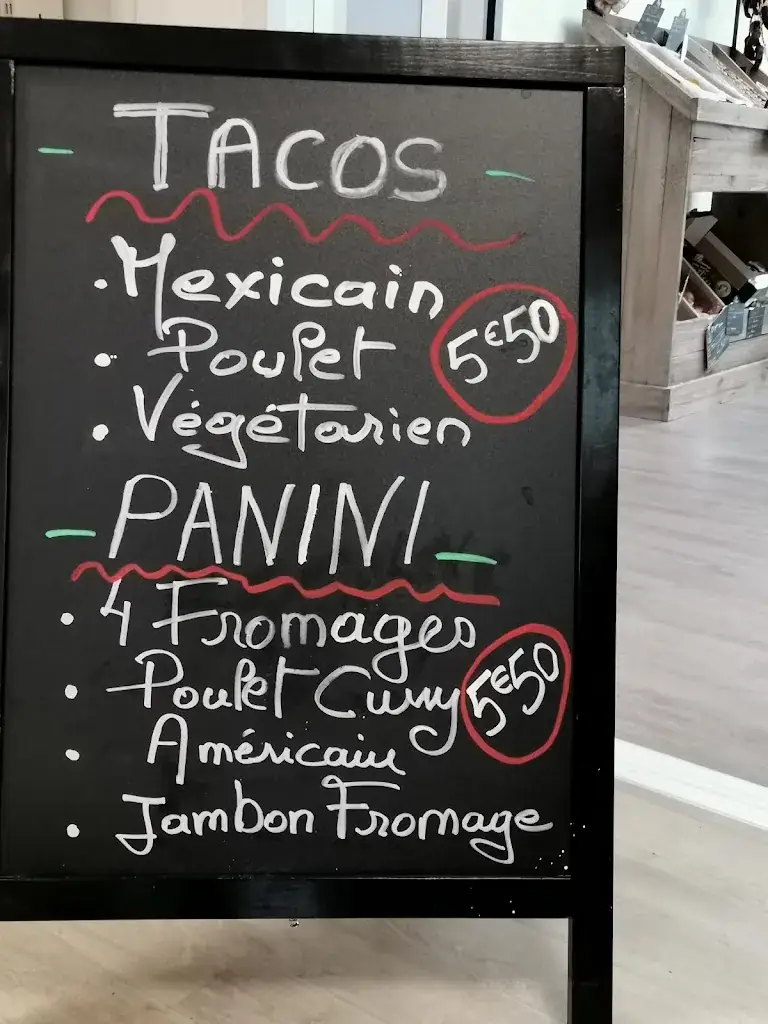 TACOS
. Mexicain
. Poulet
5€50
. Végétarien
PANINI
. 4 Fromages
. Poulet Curry
5€50
. Américain
. Jambon Fromage